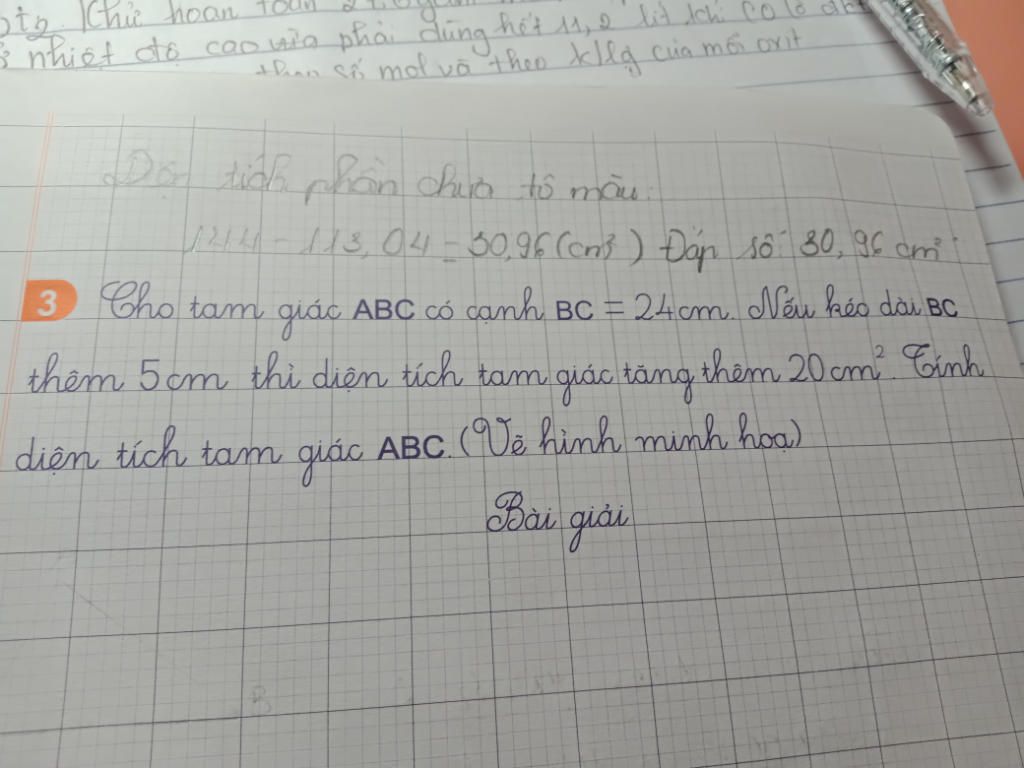 Khử hoàn toàn
ở nhiệt độ cao vừa phải dùng hết 11,2 lít khí CO
theo số mol và theo klg của mỗi oxit
Diện tích phần chưa tô màu:
144 - 113,04 = 30,96 (cm²) Đáp số: 30,96 cm²
3 Cho tam giác ABC có cạnh BC = 24cm. Nếu kéo dài BC
thêm 5cm thì diện tích tam giác tăng thêm 20cm². Tính
diện tích tam giác ABC. (Vẽ hình minh hoạ)
Bài giải